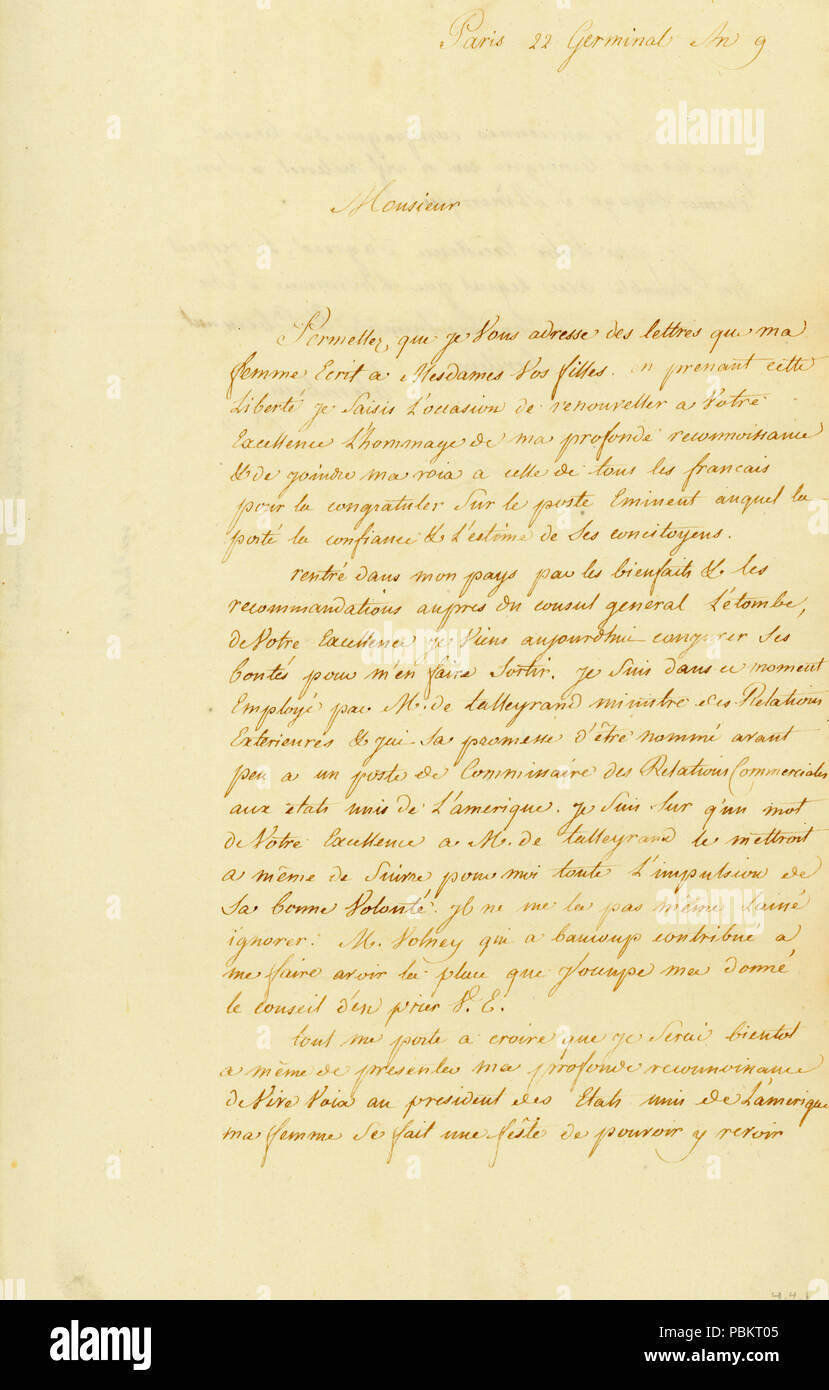 Paris 22 Germinal An 9
Monsieur
Permettez, que je Vous adresse des lettres que ma
femme Ecrit a Mesdames Vos filles. en prenant cette
Liberté je Saisis L'occasion de renouveller a Votre
Excellence L'hommage de ma profonde reconnoissance
& de joindre ma voix a celle de tous les francais
pour la congratuler Sur le poste Eminent auquel la
porté la confiance & L'estime de Ses concitoyens.
rentré dans mon pays par les bienfaits & les
recommandations aupres du consul general Létombe,
de Votre Excellence je Viens aujourdhui conjurer Ses
bontés pour m'en faire Sortir. je Suis dans ce moment
Employé par M. de talleyrand ministre des Relations
Exterieures & j'ai Sa promesse d'être nommé avant
peu a un poste de Commissaire des Relations Commerciales
aux etats unis de L'amerique. je Suis Sur q'un mot
de Votre Excellence a M. de talleyrand le mettroit
a même de Suivre pour moi toute L'impulsion de
Sa bonne Volonté. il ne me la pas même Laissé
ignorer. M. Volney qui a baucoup contribué a
me faire avoir la place que j'occupe ma donné
le conseil d'en prier V. E.
tout me porte a croire que je Serai bientot
a même de presenter ma profonde reconnoissance
de Vive Voix au president des Etats unis de L'amerique
ma femme Se fait une fête de pouvoir y revoir
4.4.1
alamy
alamy
alamy
Image ID: PBKT05
www.alamy.com